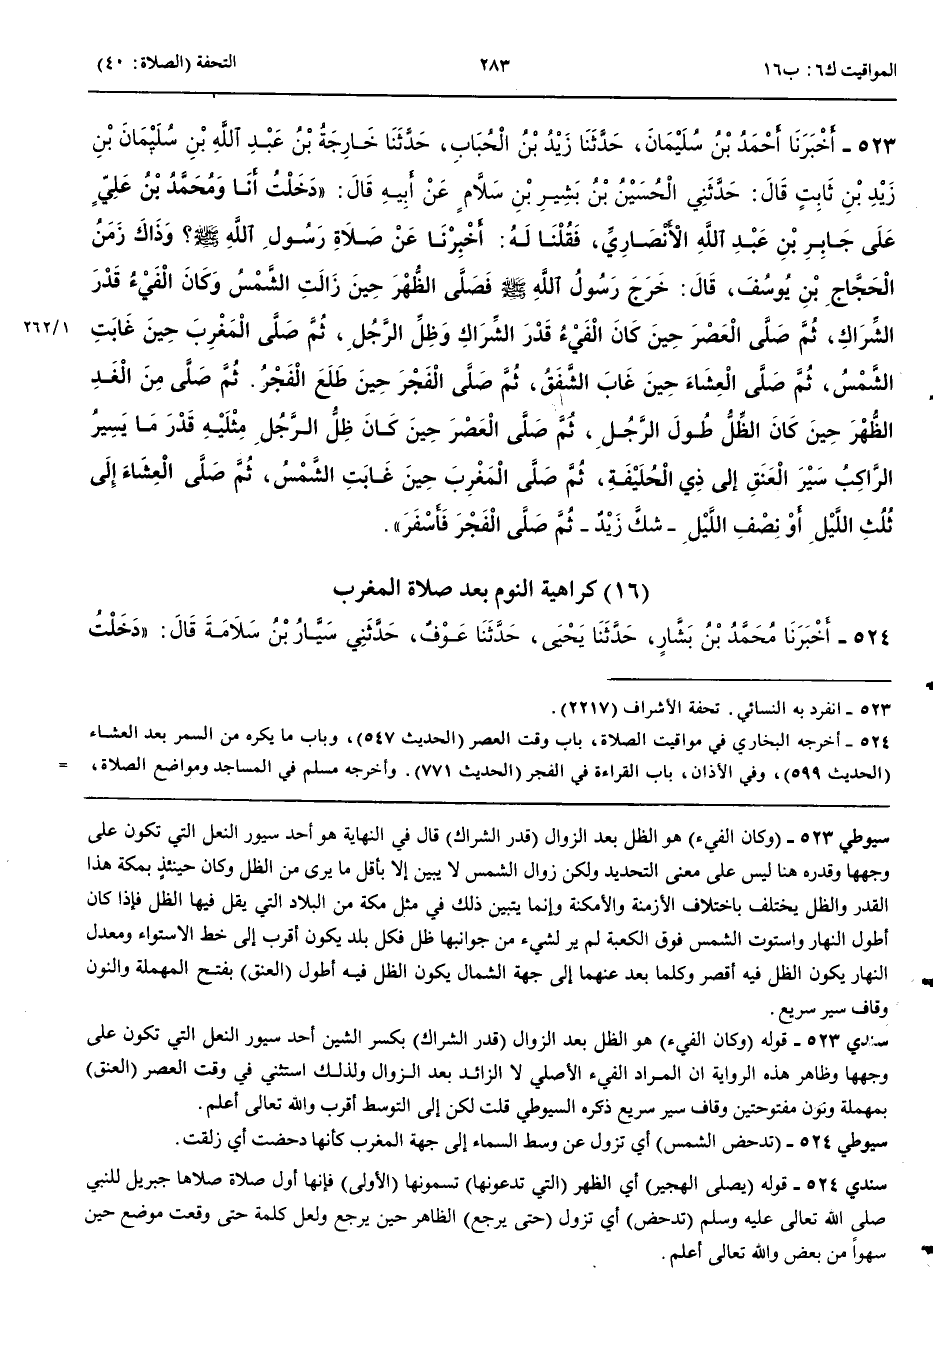 المواقيت ك٦: ب١٦ ٢٨٣ التحفة (الصلاة: ٤٠)
٥٢٣ - أَخْبَرَنَا أَحْمَدُ بْنُ سُلَيْمَانَ، حَدَّثَنَا زَيْدُ بْنُ الْحُبَابِ، حَدَّثَنَا خَارِجَةُ بْنُ عَبْدِ اللَّهِ بْنِ سُلَيْمَانَ بْنِ
زَيْدِ بْنِ ثَابِتٍ قَالَ: حَدَّثَنِي الْحُسَيْنُ بْنُ بَشِيرِ بْنِ سَلَّامٍ عَنْ أَبِيهِ قَالَ: «دَخَلْتُ أَنَا وَمُحَمَّدُ بْنُ عَلِيٍّ
عَلَى جَابِرِ بْنِ عَبْدِ اللَّهِ الْأَنْصَارِيِّ، فَقُلْنَا لَهُ: أَخْبِرْنَا عَنْ صَلَاةِ رَسُولِ اللَّهِ ﷺ؟ وَذَاكَ زَمَنُ
الْحَجَّاجِ بْنِ يُوسُفَ، قَالَ: خَرَجَ رَسُولُ اللَّهِ ﷺ فَصَلَّى الظُّهْرَ حِينَ زَالَتِ الشَّمْسُ وَكَانَ الْفَيْءُ قَدْرَ
الشِّرَاكِ، ثُمَّ صَلَّى الْعَصْرَ حِينَ كَانَ الْفَيْءُ قَدْرَ الشِّرَاكِ وَظِلِّ الرَّجُلِ، ثُمَّ صَلَّى الْمَغْرِبَ حِينَ غَابَتِ ٢٦٢/١
الشَّمْسُ، ثُمَّ صَلَّى الْعِشَاءَ حِينَ غَابَ الشَّفَقُ، ثُمَّ صَلَّى الْفَجْرَ حِينَ طَلَعَ الْفَجْرُ. ثُمَّ صَلَّى مِنَ الْغَدِ
الظُّهْرَ حِينَ كَانَ الظِّلُّ طُولَ الرَّجُلِ، ثُمَّ صَلَّى الْعَصْرَ حِينَ كَانَ ظِلُّ الرَّجُلِ مِثْلَيْهِ قَدْرَ مَا يَسِيرُ
الرَّاكِبُ سَيْرَ الْعَنَقِ إِلَى ذِي الْحُلَيْفَةِ، ثُمَّ صَلَّى الْمَغْرِبَ حِينَ غَابَتِ الشَّمْسُ، ثُمَّ صَلَّى الْعِشَاءَ إِلَى
ثُلُثِ اللَّيْلِ أَوْ نِصْفِ اللَّيْلِ - شَكَّ زَيْدٌ - ثُمَّ صَلَّى الْفَجْرَ فَأَسْفَرَ».
(١٦) كراهية النوم بعد صلاة المغرب
٥٢٤ - أَخْبَرَنَا مُحَمَّدُ بْنُ بَشَّارٍ، حَدَّثَنَا يَحْيَى، حَدَّثَنَا عَوْفٌ، حَدَّثَنِي سَيَّارُ بْنُ سَلَامَةَ قَالَ: «دَخَلْتُ
٥٢٣ - انفرد به النسائي. تحفة الأشراف (٢٢١٧).
٥٢٤ - أخرجه البخاري في مواقيت الصلاة، باب وقت العصر (الحديث ٥٤٧)، وباب ما يكره من السمر بعد العشاء
(الحديث ٥٩٩)، وفي الأذان، باب القراءة في الفجر (الحديث ٧٧١). وأخرجه مسلم في المساجد ومواضع الصلاة، =
سيوطي ٥٢٣ - (وكان الفيء) هو الظل بعد الزوال (قدر الشراك) قال في النهاية هو أحد سيور النعل التي تكون على
وجهها وقدره هنا ليس على معنى التحديد ولكن زوال الشمس لا يبين إلا بأقل ما يرى من الظل وكان حينئذٍ بمكة هذا
القدر والظل يختلف باختلاف الأزمنة والأمكنة وإنما يتبين ذلك في مثل مكة من البلاد التي يقل فيها الظل فإذا كان
أطول النهار واستوت الشمس فوق الكعبة لم ير لشيء من جوانبها ظل فكل بلد يكون أقرب إلى خط الاستواء ومعدل
النهار يكون الظل فيه أقصر وكلما بعد عنهما إلى جهة الشمال يكون الظل فيه أطول (العنق) بفتح المهملة والنون
وقاف سير سريع.
سندي ٥٢٣ - قوله (وكان الفيء) هو الظل بعد الزوال (قدر الشراك) بكسر الشين أحد سيور النعل التي تكون على
وجهها وظاهر هذه الرواية ان المراد الفيء الأصلي لا الزائد بعد الزوال ولذلك استثني في وقت العصر (العنق)
بمهملة ونون مفتوحتين وقاف سير سريع ذكره السيوطي قلت لكن إلى التوسط أقرب والله تعالى أعلم.
سيوطي ٥٢٤ - (تدحض الشمس) أي تزول عن وسط السماء إلى جهة المغرب كأنها دحضت أي زلقت.
سندي ٥٢٤ - قوله (يصلى الهجير) أي الظهر (التي تدعونها) تسمونها (الأولى) فإنها أول صلاة صلاها جبريل للنبي
صلى الله تعالى عليه وسلم (تدحض) أي تزول (حتى يرجع) الظاهر حين يرجع ولعل كلمة حتى وقعت موضع حين
سهواً من بعض والله تعالى أعلم.